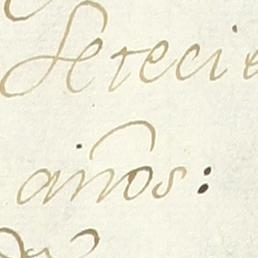 Setecie
años: